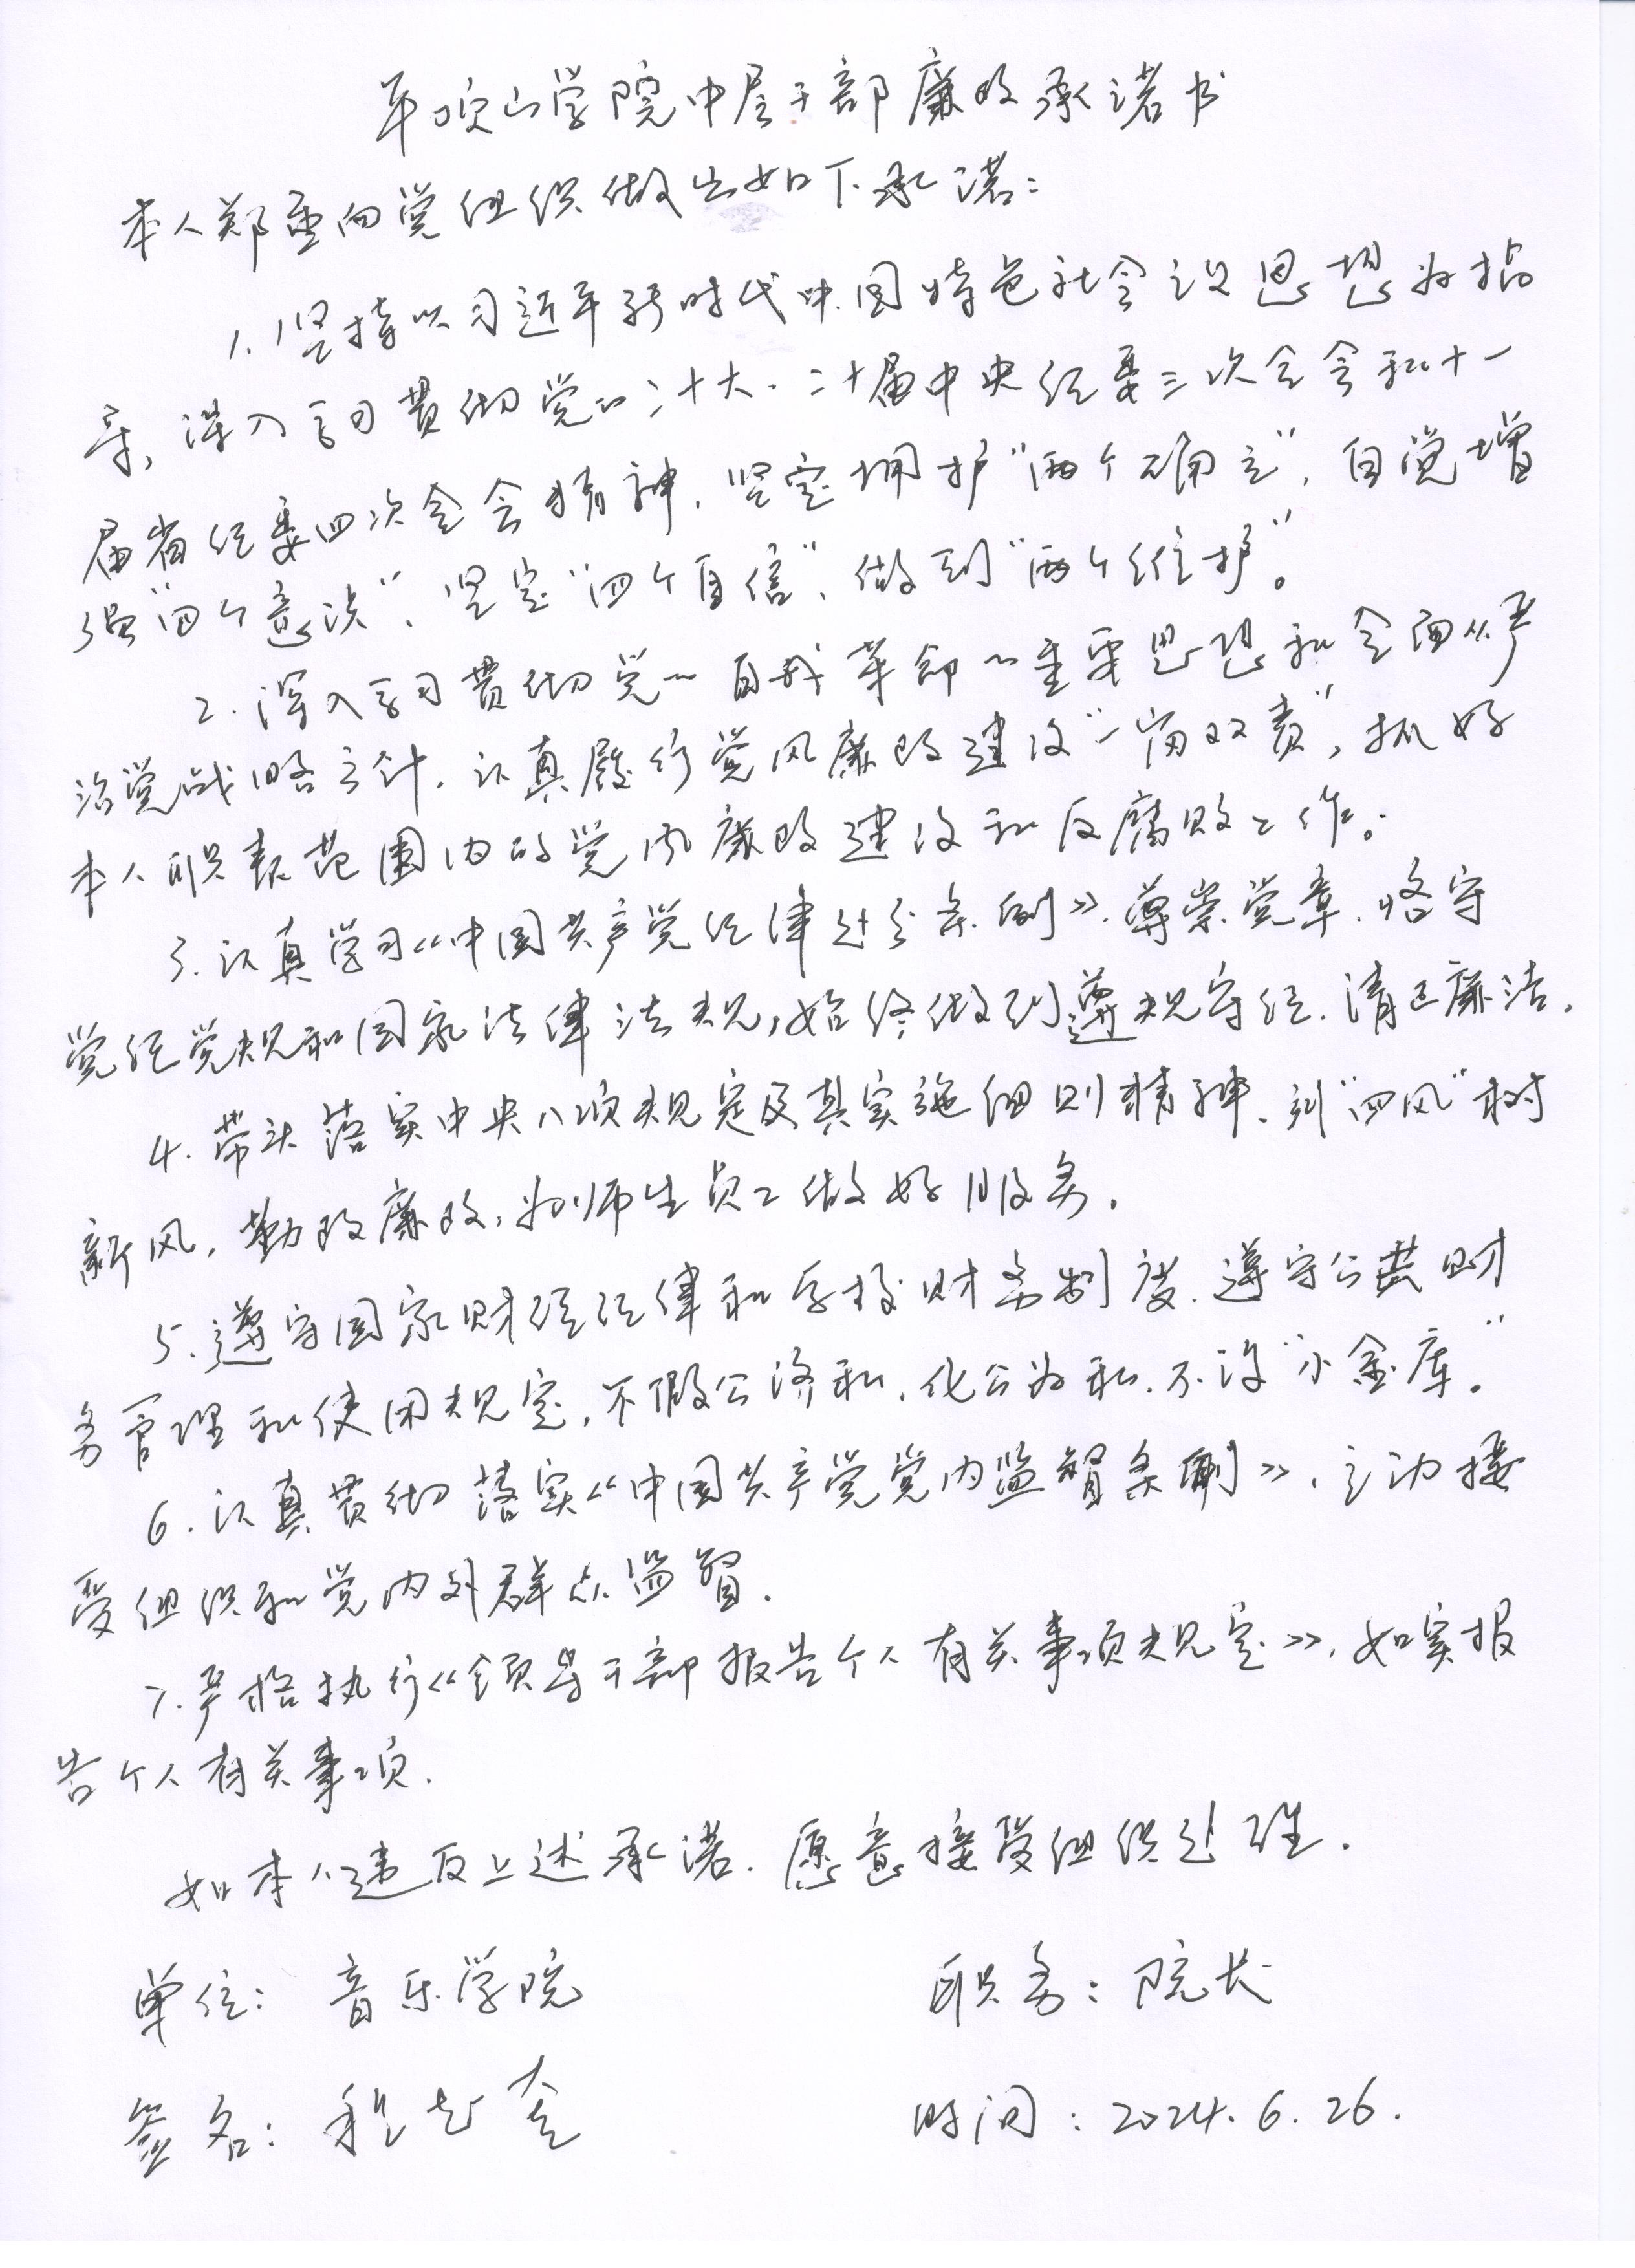 平顶山学院中层干部廉政承诺书
本人郑重向党组织做出如下承诺：
1.坚持以习近平新时代中国特色社会主义思想为指
导，深入学习贯彻党的二十大、二十届中央纪委三次全会和十一
届省纪委四次全会精神，坚定拥护“两个确立”，自觉增
强“四个意识”、坚定“四个自信”、做到“两个维护”。
2.深入学习贯彻党的自我革命的重要思想和全面从严
治党战略方针，认真履行党风廉政建设“一岗双责”，抓好
本人职责范围内的党风廉政建设和反腐败工作。
3.认真学习《中国共产党纪律处分条例》，尊崇党章，恪守
党纪党规和国家法律法规，始终做到遵规守纪、清正廉洁。
4.带头落实中央八项规定及其实施细则精神，纠“四风”树
新风，勤政廉政，为师生员工做好服务。
5.遵守国家财经纪律和学校财务制度，遵守公共财
务管理和使用规定，不假公济私，化公为私，不设“小金库”。
6.认真贯彻落实《中国共产党党内监督条例》，主动接
受组织和党内外群众监督。
7.严格执行《领导干部报告个人有关事项规定》，如实报
告个人有关事项.
如本人违反上述承诺，愿意接受组织处理.
单位：音乐学院 职务：院长
签名： 时间：2024.6.26.